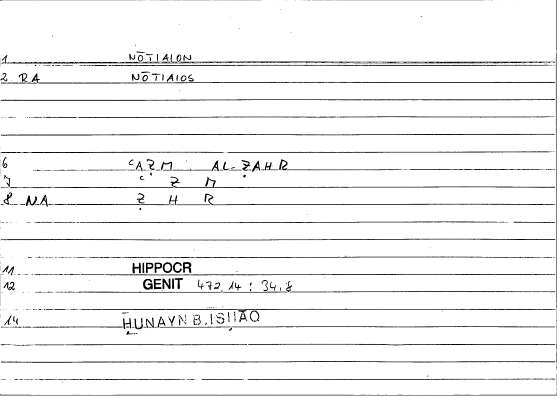 1 NŌTIAION
2 RA NŌTIAIOS
6 ʿAẒM AL-ẒAHR
7 ʿ Ẓ M
8 NA Ẓ H R
11 HIPPOCR
12 GENIT 472.14 : 34.8
14 ḤUNAYN B. ISḤĀQ